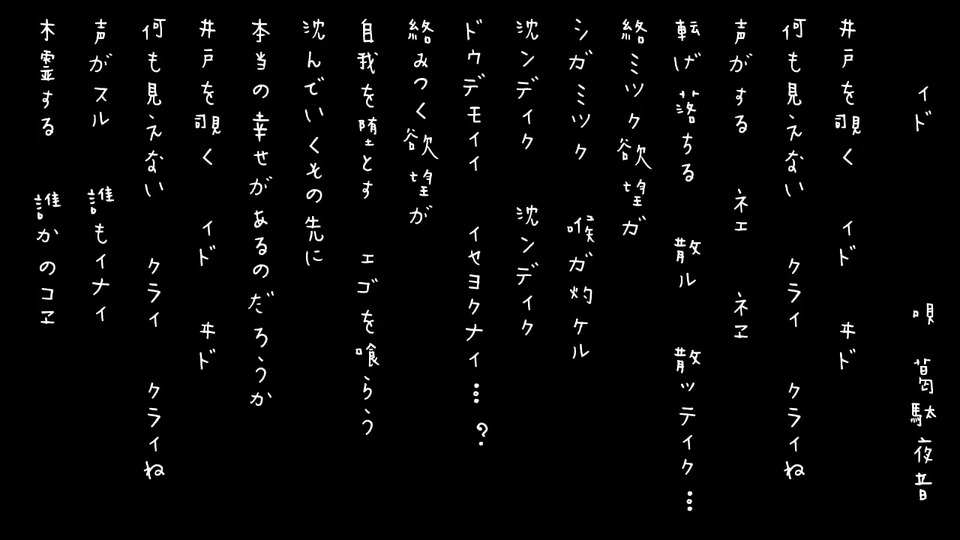 イド
唄 葛駄夜音
井戸を覗く イド ヰド
何も見えない クライ クライね
声がする ネエ ネヱ
転げ落ちる 散ル 散ッテイク…
絡ミツク欲望ガ
シガミツク 喉ガ灼ケル
沈ンデイク 沈ンデイク
ドウデモイイ イセヨクナイ…?
絡みつく欲望が
自我を堕とす エゴを喰らう
沈んでいくその先に
本当の幸せがあるのだろうか
井戸を覗く イド ヰド
何も見えない クライ クライね
声がスル 誰もイナイ
木霊する 誰かのコヱ